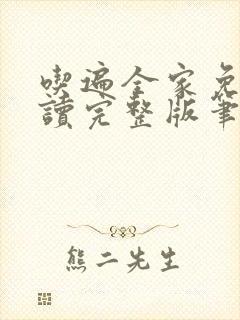 喫遍全家免
讀完整版筆
熊二先生